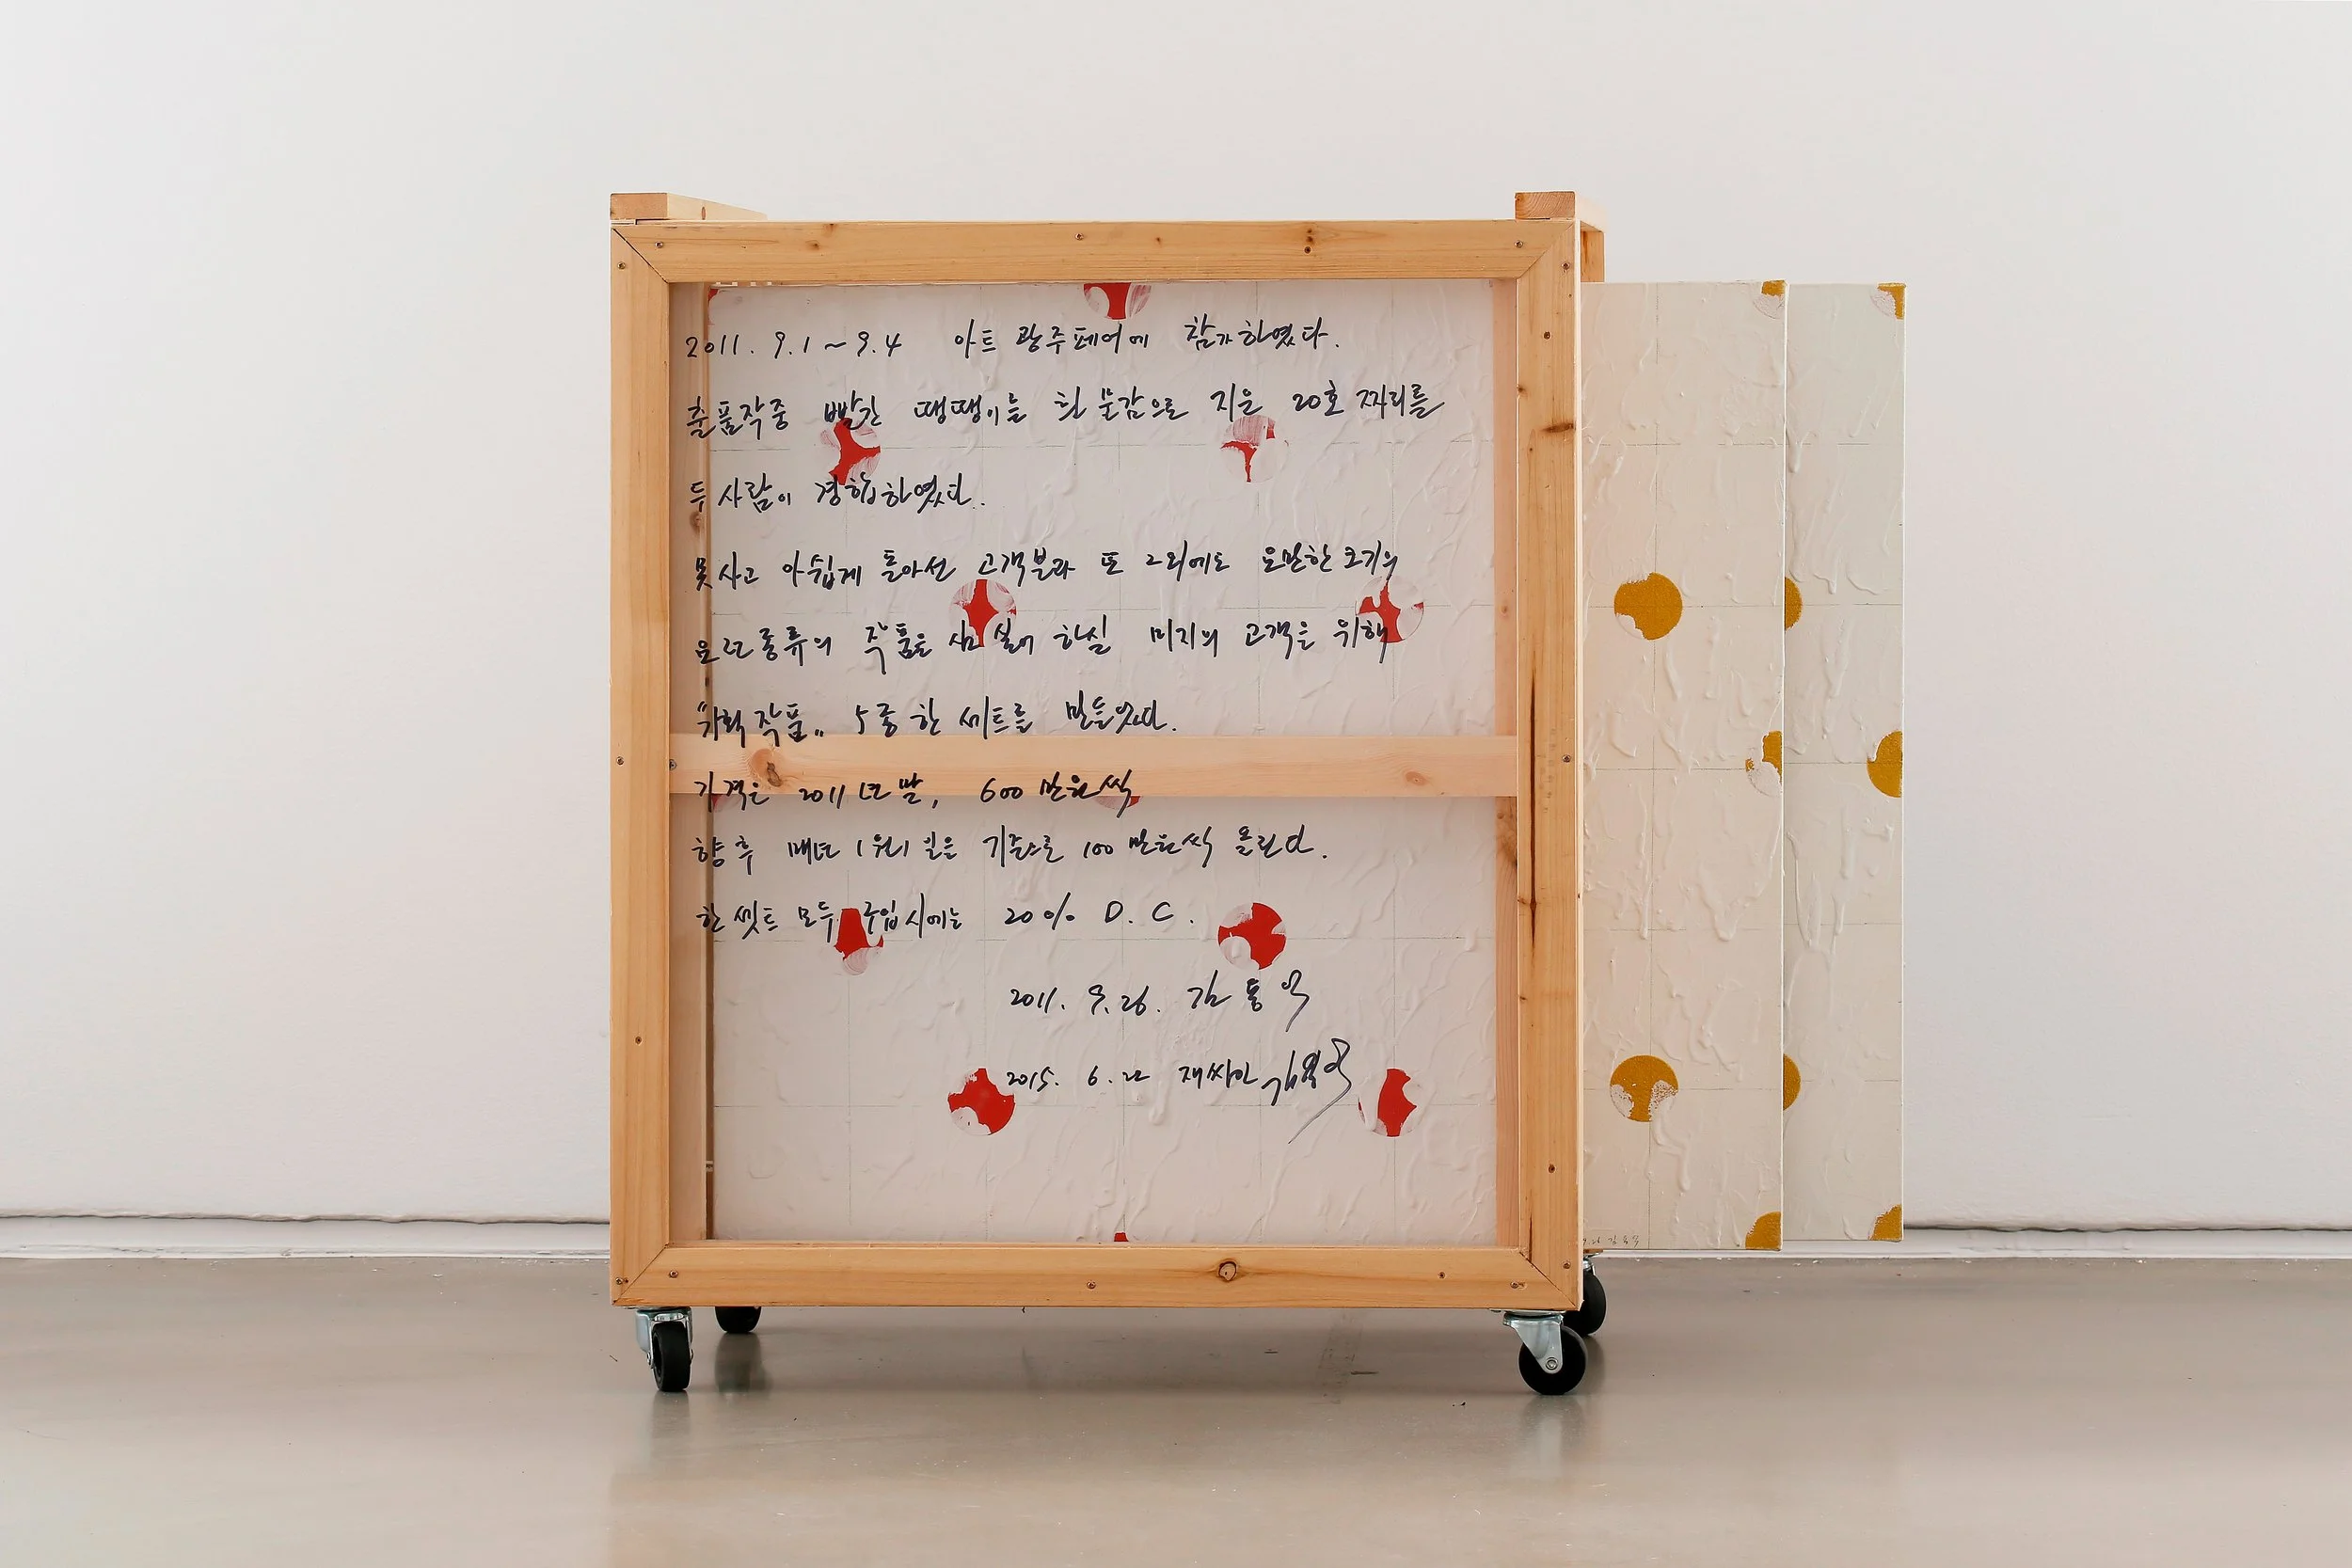 2011. 9.1 ~ 9.4 아트 광주페어에 참가하였다.
출품작중 빨간 땡땡이를 흰 물감으로 지운 20호 짜리를
두 사람이 경합하였다.
못사고 아쉽게 돌아선 고객분과 또 그외에도 웬만한 크기의
요런 종류의 작품을 하실 미지의 고객을 위해
"기획작품" 5종 한 세트를 만들었다.
가격은 2011년 말, 600 만원씩
향후 매년 1월1일을 기준으로 100 만원씩 올린다.
한 셋트 모두 구입시에는 20% D. C.
2011. 9. 26. 김용익
2015. 6. 22 재싸인 김용익